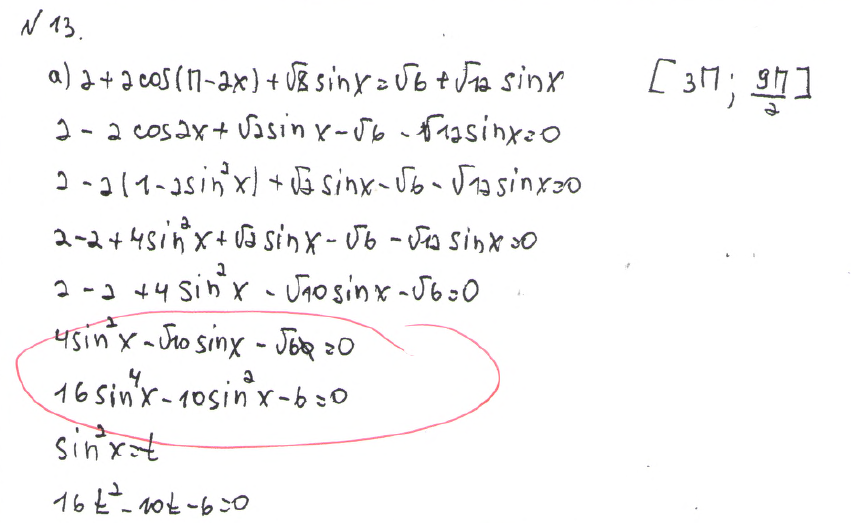 N 13.
а) 2 + 2cos(π-2x) + √8 sinx = √6 + √12 sinx [3π; 9π/2]
2 - 2cos2x + √2sinx - √6 - √12sinx = 0
2 - 2(1-2sin²x) + √2 sinx - √6 - √12 sinx = 0
2-2+4sin²x + √2 sinx - √6 - √12 sinx = 0
2 - 2 + 4 sin²x - √10 sinx - √6 = 0
4sin²x - √10 sinx - √6 = 0
16sin⁴x - 10sin²x - 6 = 0
sin²x = t
16t² - 10t - 6 = 0